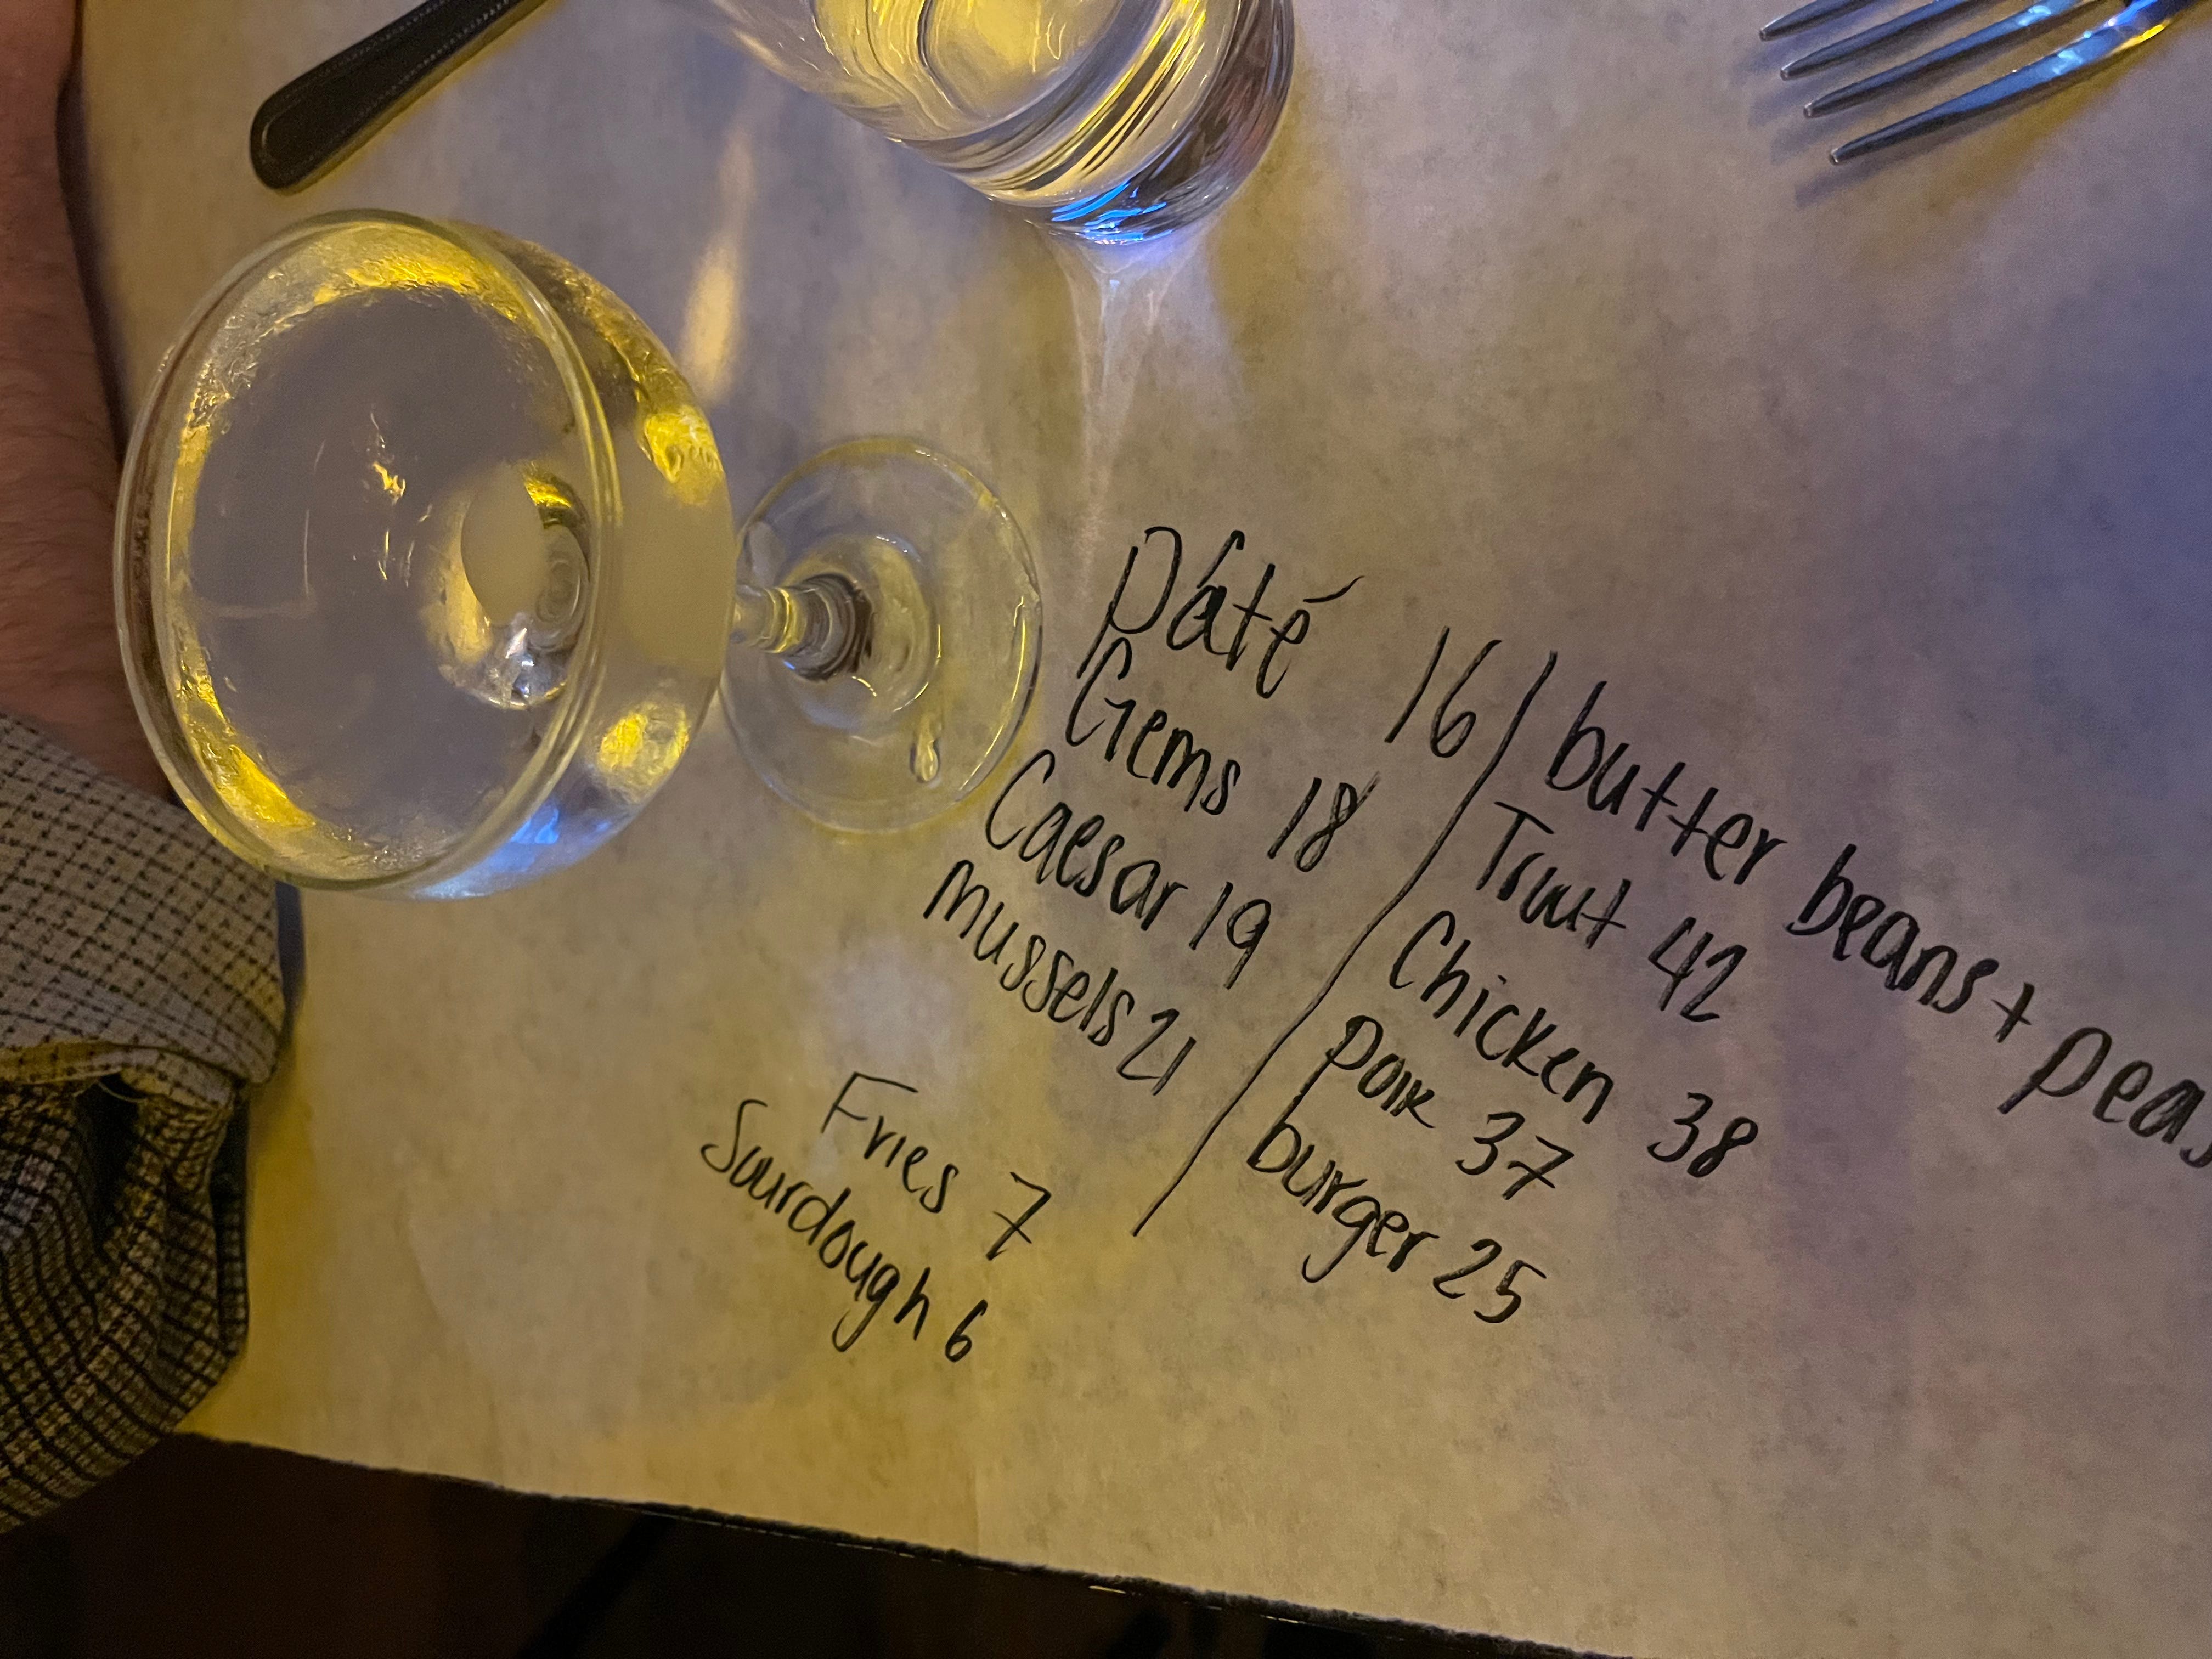 Páté 16
Gems 18
Caesar 19
mussels 21
Fries 7
Sourdough 6
butter beans + peas
Trout 42
Chicken 38
Pork 37
burger 25